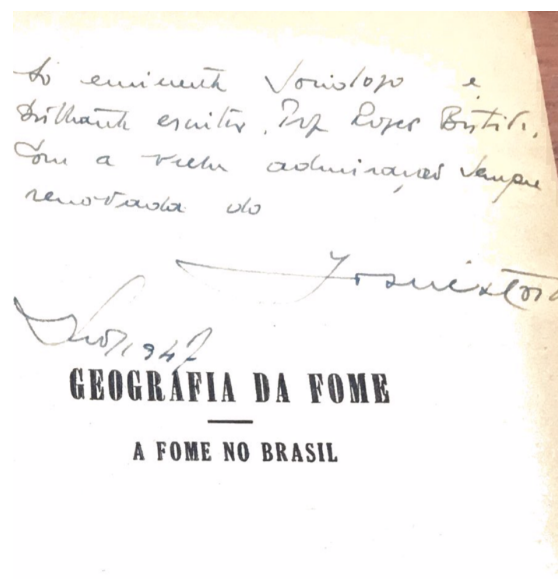 Ao eminente Sociologo e
brilhante escritor, Prof Roger Bastide,
Com a velha admiração sempre
renovada do
Josué de Castro
Rio, 1947
GEOGRAFIA DA FOME
A FOME NO BRASIL